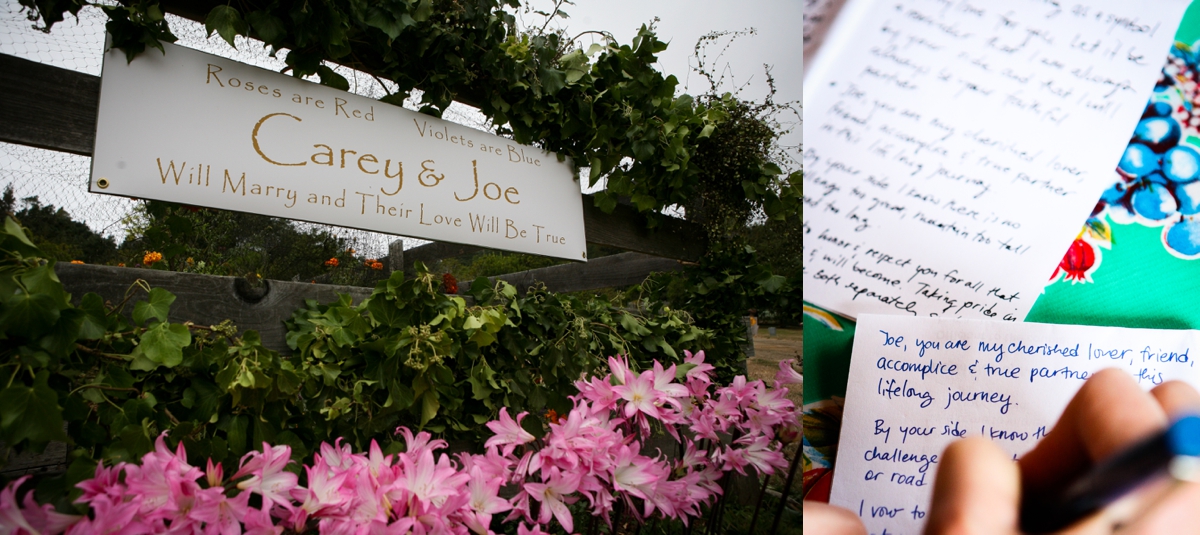 Roses are Red Violets are Blue
Carey & Joe
Will Marry and Their Love Will Be True
as a symbol
my love for you. Let it be
a reminder that I am always
by your side and that I will
always be your faithful
partner
Joe, you are my cherished lover,
friend, accomplice & true partner
in this lifelong journey.
By your side I know there is no
challenge too great, mountain too tall
road too long.
honor & respect you for all that
& will become. Taking pride in
both separately
Joe, you are my cherished lover, friend,
accomplice & true partner this
lifelong journey.
By your side, I know th
challenge
or road
I vow to